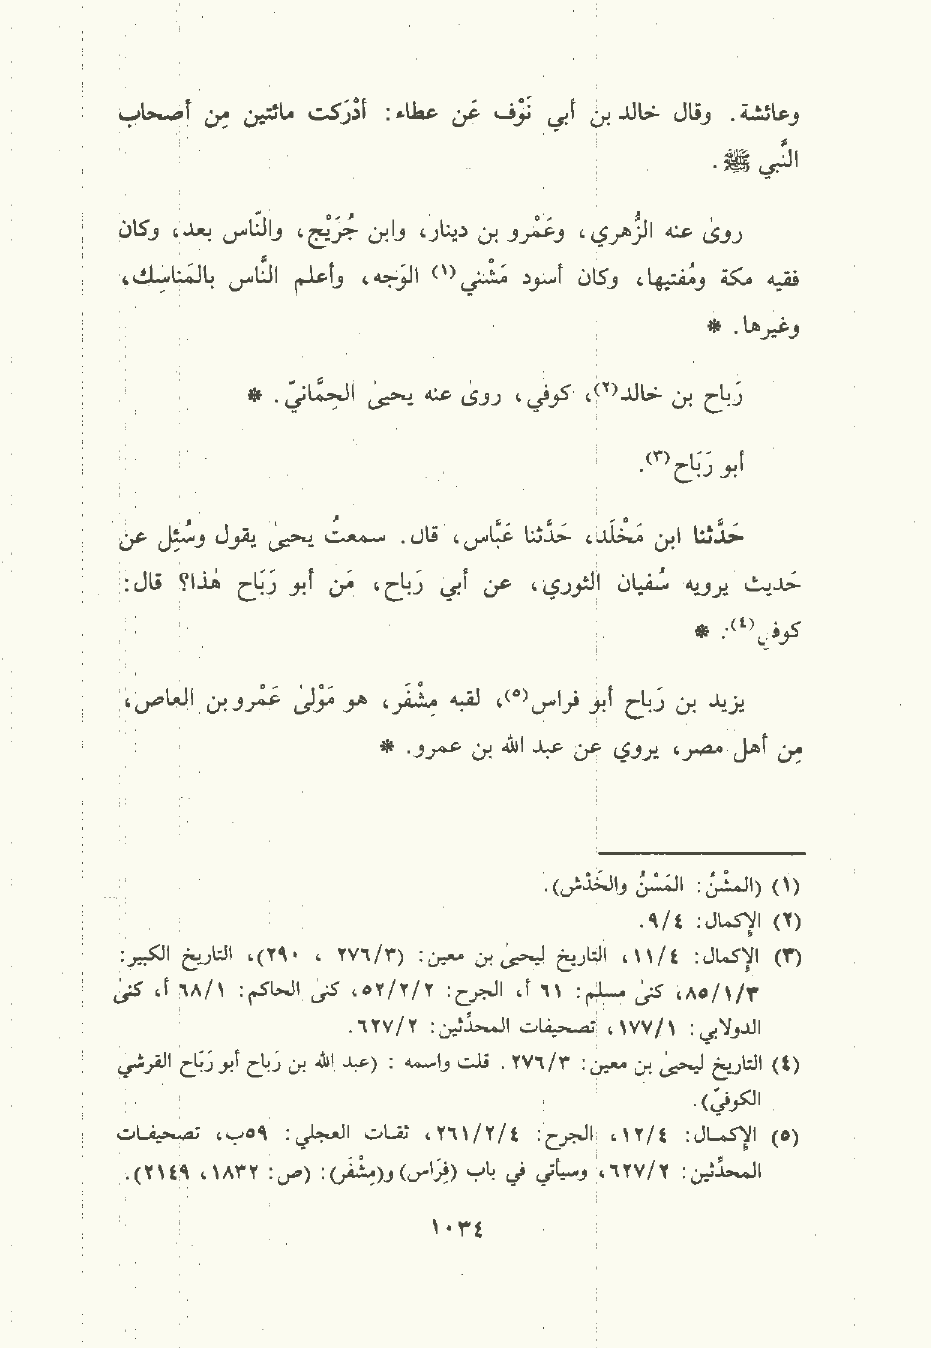 وعائشة. وقال خالد بن أبي نَوْف عَن عطاء: أدْرَكت مائتين مِن أصحاب
النَّبي ﷺ.
روىٰ عنه الزُّهري، وعَمْرو بن دينار، وابن جُرَيْج، والنّاس بعد، وكان
فقيه مكة ومُفتيها، وكان أسود مَشْني(١) الوَجه، وأعلم النَّاس بالمَناسِك،
وغيرها. *
رَباح بن خالد(٢)، كوفي، روىٰ عنه يحيىٰ الحِمَّانيّ. *
أبو رَبَاح(٣).
حَدَّثنا ابن مَخْلَد، حَدَّثنا عَبَّاس، قال. سمعتُ يحيىٰ يقول وسُئِل عن
حَديث يرويه سُفيان الثوري، عن أبي رَباح، مَن أبو رَبَاح هٰذا؟ قال:
كوفي(٤). *
يزيد بن رَباح أبو فراس(٥)، لقبه مِشْفَر، هو مَوْلىٰ عَمْرو بن العاص،
مِن أهل مصر، يروي عن عبد الله بن عمرو. *
(١) (المشْنُ: المَسْنُ والخَدْش).
(٢) الإكمال: ٩/٤.
(٣) الإكمال: ١١/٤، التاريخ ليحيىٰ بن معين: (٢٧٦/٣ ، ٢٩٠)، التاريخ الكبير:
٨٥/١/٣، كنىٰ مسلم: ٦١ أ، الجرح: ٥٢/٢/٢، كنىٰ الحاكم: ٦٨/١ أ، كنىٰ
الدولابي: ١٧٧/١، تصحيفات المحدِّثين: ٦٢٧/٢.
(٤) التاريخ ليحيىٰ بن معين: ٢٧٦/٣. قلت واسمه : (عبد الله بن رَباح أبو رَبَاح القرشي
الكوفيّ).
(٥) الإكمال: ١٢/٤، الجرح: ٢٦١/٢/٤، ثقات العجلي: ٥٩ب، تصحيفات
المحدِّثين: ٦٢٧/٢، وسيأتي في باب (فِرَاس) و(مِشْفَر): (ص: ١٨٣٢، ٢١٤٩).
١٠٣٤